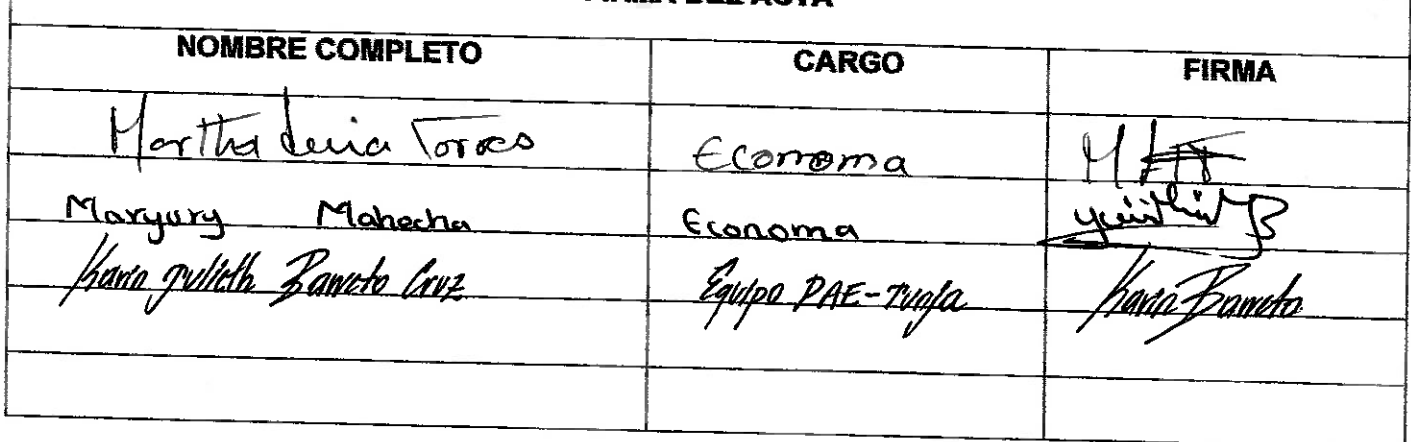 FIRMA DEL ACTA
NOMBRE COMPLETO CARGO FIRMA
Martha Lucia Torres Economa
Maryury Mahecha Economa
Karin Julieth Barreto Cruz Equipo PAE-Tunja Karin Barreto